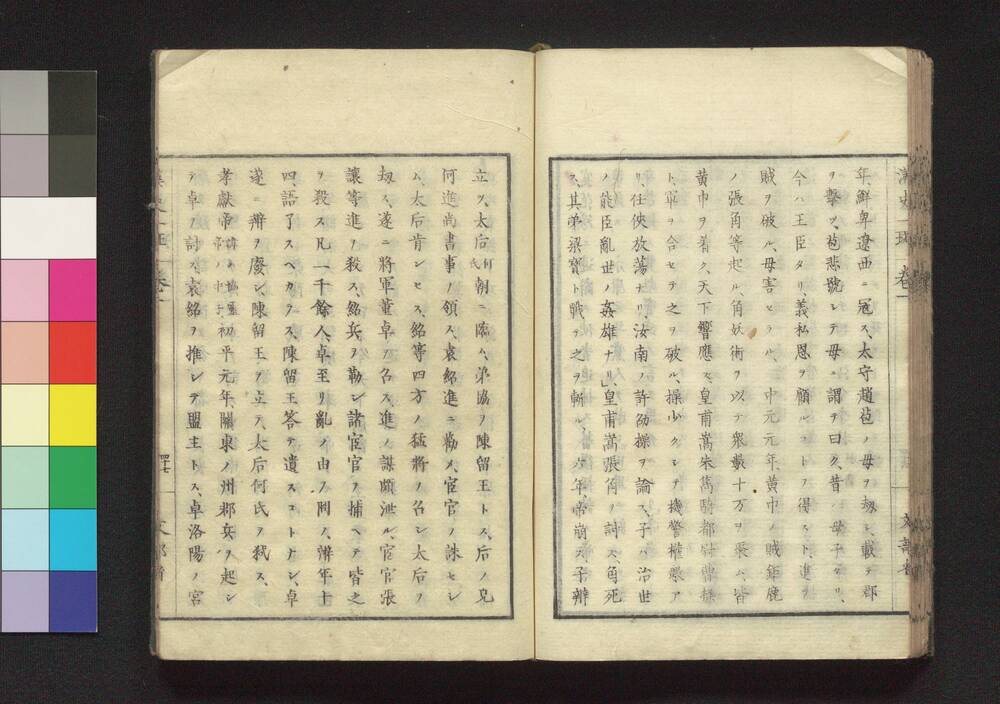 年、鮮卑遼西ニ冦ス、太守趙苞ノ母ヲ劫シ、載テ郡
ヲ撃ツ、苞悲號シテ母ニ謂ヲ曰ク、昔ハ母子タリ、
今ハ王臣タリ、義私恩ヲ顧ルコトヲ得スト、進ヲ
賊ヲ破ル、母害セラル、中元元年、黄巾ノ賊鉅鹿
ノ張角等起ル、角妖術ヲ以テ衆數十万ヲ聚ム、皆
黄巾ヲ着ク、天下響應ス、皇甫嵩朱儁騎都尉曹操
ト軍ヲ合セテ之ヲ破ル、操少クシテ機警權數ア
リ、任侠放蕩ナリ、汝南ノ許劭操ヲ論ス、子ハ治世
ノ能臣亂世ノ姦雄ナリ、皇甫嵩張角ヲ討ス、角死
ス、其弟梁寳ト戰テ之ヲ斬ル、六年、帝崩ス、子辨
立ツ、太后何氏朝ニ臨ム、弟協ヲ陳留王トス、后ノ兄
何進尚書事ヲ領ス、袁紹進ニ勸メ、宦官ヲ誅セシ
ム、太后肯ンセス、紹等四方ノ猛將ヲ召シ太后ヲ
劫ス、遂ニ將軍董卓ヲ召ス、進ノ謀頗泄ル、宦官張
讓等進ヲ殺ス、紹兵ヲ勒シ諸宦官ヲ捕ヘテ皆之
ヲ殺ス凡一千餘人、卓至リ亂ノ由ヲ問ス、辨年十
四、語了スヘカラス、陳留王答テ遺スコトナシ、卓
遂ニ辨ヲ廢シ、陳留王ヲ立テ、太后何氏ヲ弑ス、
孝獻帝初平元年、關東ノ州郡兵ヲ起シ
テ卓ヲ討ス、袁紹ヲ推シテ盟主トス、卓洛陽ノ宮
四十七